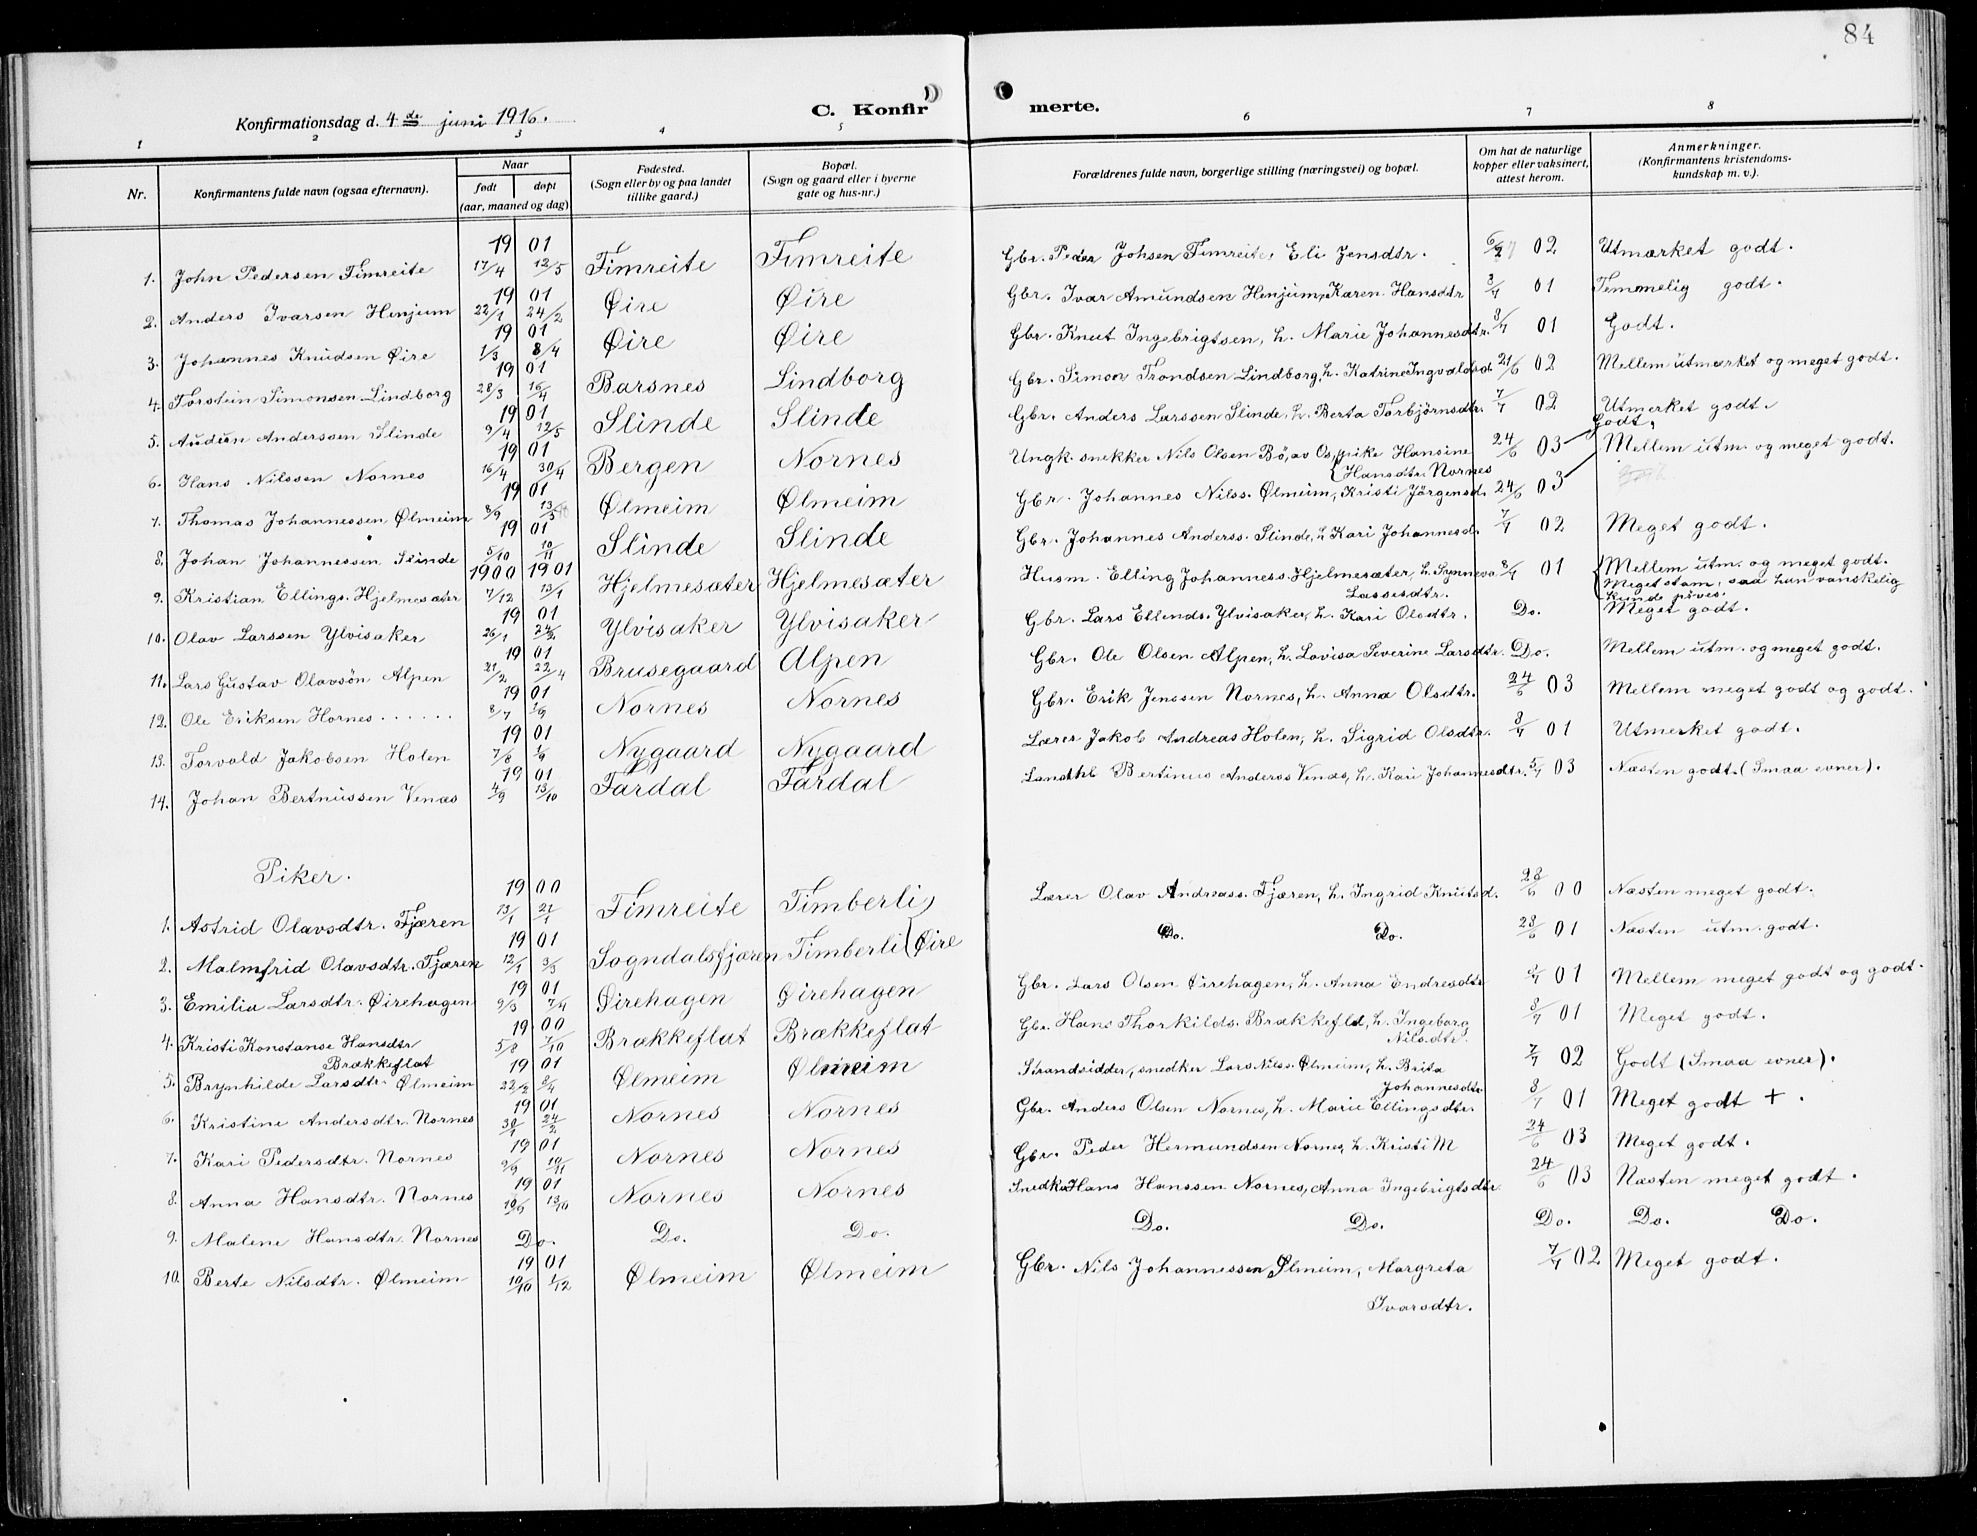 84
Konfirmationsdag d. 4 de juni 1916.
C. Konfirmerte.
1 2 3 4 5 6 7 8
Nr. Konfirmantens fulde navn (ogsaa efternavn). Naar født døpt (aar, maaned og dag) Fødested. (Sogn eller by og paa landet tillike gaard.) Bopæl. (Sogn og gaard eller i byerne gate og hus-nr.) Forældrenes fulde navn, borgerlige stilling (næringsvei) og bopæl. Om hat de naturlige kopper eller vaksinert, attest herom. Anmerkninger. (Konfirmantens kristendoms-kundskap m. v.).
1. John Pedersen Timreite 1901 17/4 12/5 Timreite Timreite Gbr. Peder Johsen Timreite, Eli Jensdtr. 02 Utmærket godt.
2. Anders Ivarsen Henjum 1901 22/1 24/2 Øire Øire Gbr. Ivar Amundsen Henjum, Karen Hansdtr 3/7 01 Temmelig godt.
3. Johannes Knudsen Øire 1901 1/3 8/4 Øire Øire Gbr. Knut Ingebrigtsen, h. Marie Johannesdtr. 3/7 01 Godt.
4. Torstein Simonsen Lindborg 1901 28/3 16/4 Barsnes Lindborg Gbr. Simon Trondsen Lindborg, h. Katrine Ingvaldsd. 21/6 02 Mellem utmærket og meget godt.
5. Audun Anderssen Slinde 1901 9/4 12/5 Slinde Slinde Gbr. Anders Larssen Slinde, h. Berta Torbjörnsdtr. 7/7 02 Utmerket godt.
Godt.
6. Hans Nilssen Nornes 1901 16/4 30/4 Bergen Nornes Ungk. snekker Nils Olsen Bö, av Os, pike Hansine Hansdtr. Nornes 24/6 03 Mellem utm. og meget godt.
7. Thomas Johannessen Ølmeim 1901 8/9 13/ Ølmeim Ølmeim Gbr. Johannes Nilss. Ølmeim, Kristi Jörgensd. 24/6 03
8. Johan Johannessen Slinde 1901 5/10 10/11 Slinde Slinde Gbr. Johannes Anderss. Slinde, h. Kari Johannesd. 7/7 02 Meget godt.
9. Kristian Ellings. Hjelmesæter 1900 1901 7/12 13/1 Hjelmesæter Hjelmesæter Husm. Elling Johanness. Hjelmesæter, h. Synneva Lassesdtr. 3/7 01 Mellem utm. og meget godt. Meget stam, saa han vanskelig kunde pöves.
10. Olav Larssen Ylvisaker 1901 26/1 24/2 Ylvisaker Ylvisaker Gbr. Lars Ellends. Ylvisaker, h. Kari Olsdtr. Do. Meget godt.
11. Lars Gustav Olavsön Alpen 1901 21/2 22/4 Brusegaard Alpen Gbr. Ole Olsen Alpen, h. Lovisa Severine Larsdtr. Do. Mellem utm. og meget godt.
12. Ole Eriksen Hornes...... 1901 8/7 1/9 Nornes Nornes Gbr. Erik Jenssen Nornes, h. Anna Olsdtr. 24/6 03 Mellem meget godt og godt.
13. Torvald Jakobsen Holen 1901 7/8 1/9 Nygaard Nygaard Lærer Jakob Andreas Holen, h. Sigrid Olsdtr. 3/7 01 Utmerket godt.
14. Johan Bertnussen Venæs 1901 4/9 13/10 Fardal Fardal Landhl. Bertinus Anderss Venæs, h. Kari Johannesdtr. 5/7 03 Næsten godt. (Smaa evner).
Piker.
1. Astrid Olavsdtr. Fjæren 1900 13/1 21/1 Timreite Timberli Lærer Olav Andreass. Fjæren, h. Ingrid Knutsd. 28/6 00 Næsten meget godt.
2. Malmfrid Olavsdtr. Fjæren 1901 12/1 3/3 Sogndalsfjæren Timberli (Øire Do. Do. 28/6 01 Næsten utm. godt.
3. Emilia Larsdtr. Øirehagen 1901 9/3 7/4 Øirehagen Øirehagen Gbr. Lars Olsen Øirehagen, h. Anna Endresdtr 3/7 01 Mellem meget godt og godt.
4. Kristi Konstanse Hansdtr Brækkeflat 1900 5/8 7/10 Brækkeflat Brækkeflat Gbr. Hans Thorkilds. Brækkefld, h. Ingeborg Nilsdtr. 3/7 01 Meget godt.
5. Brynhilde Larsdtr. Ølmeim 1901 22/2 8/4 Ølmeim Ølmeim Strandsidder, snedker Lars Nilss. Ølmeim, h. Brita Johannesdtr 7/7 02 Godt (Smaa evner).
6. Kristine Andersdtr. Nornes 1901 30/1 24/2 Nornes Nornes Gbr. Anders Olsen Nornes, h. Marie Ellingsdtr 3/7 01 Meget godt +.
7. Kari Pedersdtr. Nornes 1901 9/9 10/11 Nornes Nornes Gbr. Peder Hermundsen Nornes, h. Kristi M 24/6 03 Meget godt.
8. Anna Hansdtr. Nornes 1901 13/10 Nornes Nornes Snedker Hans Hanssen Nornes, Anna Ingebrigtsdtr. 24/6 03 Næsten meget godt.
9. Malene Hansdtr. Nornes Do. Do. Do. Do. Do. Do. Do. Do.
10. Berte Nilsdtr. Ølmeim 1901 10/10 1/12 Ølmeim Ølmeim Gbr. Nils Johannessen Ølmeim, Margreta Ivarsdtr. 7/7 02 Meget godt.